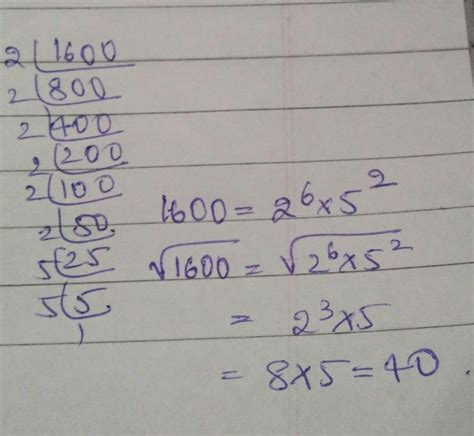 2 | 1600
2 | 800
2 | 400
2 | 200
2 | 100
2 | 50
5 | 25
5 | 5
1
1600 = 2⁶ × 5²
√1600 = √2⁶ × 5²
= 2³ × 5
= 8 × 5 = 40